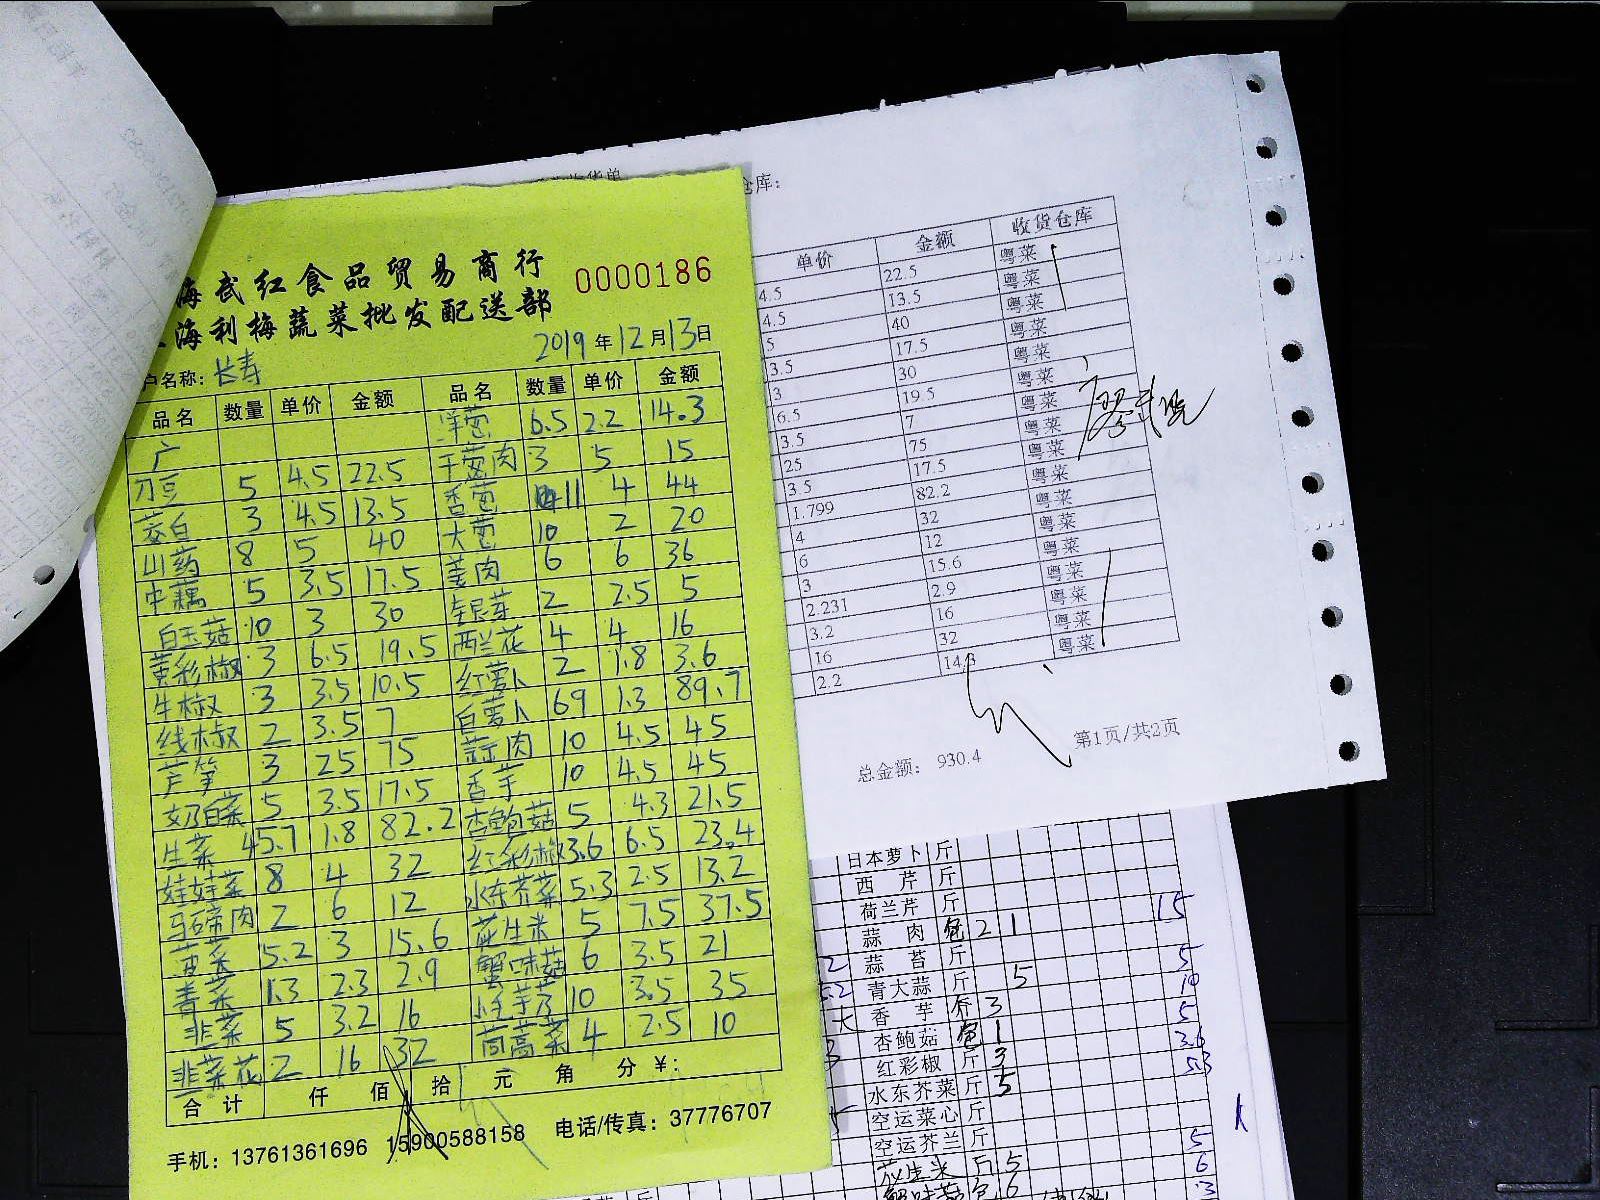 海武红食品贸易商行
0000186
海利梅蔬菜批发配送部
2019年12月13日
户名称：长寿
品名 数量 单价 金额 品名 数量 单价 金额
洋葱 6.5 2.2 14.3
广 干葱肉 3 5 15
刀豆 5 4.5 22.5 香葱 11 4 44
茭白 3 4.5 13.5 大葱 10 2 20
山药 8 5 40 姜肉 6 6 36
中藕 5 3.5 17.5 银芽 2 2.5 5
白玉菇 10 3 30 西兰花 4 4 16
黄彩椒 3 6.5 19.5 红萝卜 2 1.8 3.6
牛椒 3 3.5 10.5 白萝卜 69 1.3 89.7
线椒 2 3.5 7 蒜肉 10 4.5 45
芦笋 3 25 75 香芋 10 4.5 45
奶白菜 5 3.5 17.5 杏鲍菇 5 4.3 21.5
生菜 45.7 1.8 82.2 红彩椒 3.6 6.5 23.4
娃娃菜 8 4 32 水东芥菜 5.3 2.5 13.2
马蹄肉 2 6 12 花生米 5 7.5 37.5
5.2 3 15.6 蟹味菇 6 3.5 21
青菜 1.3 2.3 2.9 小毛芋艿 10 3.5 35
韭菜 5 3.2 16 茼蒿菜 4 2.5 10
韭菜花 2 16 32
合计 仟 佰 拾 元 角 分 ¥：
手机：13761361696 15900588158 电话/传真：37776707
收货单
仓库：
单价 金额 收货仓库
4.5 22.5 粤菜
4.5 13.5 粤菜
5 40 粤菜
3.5 17.5 粤菜
3 30 粤菜
6.5 19.5 粤菜
3.5 7 粤菜
25 75 粤菜
3.5 17.5 粤菜
1.799 82.2 粤菜
4 32 粤菜
6 12 粤菜
3 15.6 粤菜
2.231 2.9 粤菜
3.2 16 粤菜
16 32 粤菜
2.2 14.3 粤菜
总金额： 930.4
第1页/共2页
日本萝卜 斤
西芹 斤
荷兰芹 斤
蒜肉 包 2 1 15
蒜苔 斤
青大蒜 斤 5 5
香芋 斤 3 10
杏鲍菇 包 1 5
红彩椒 斤 3 3.6
水东芥菜 斤 5 5.3
空运菜心 斤
空运芥兰 斤
花生米 斤 5 5
蟹味菇 包 6 6